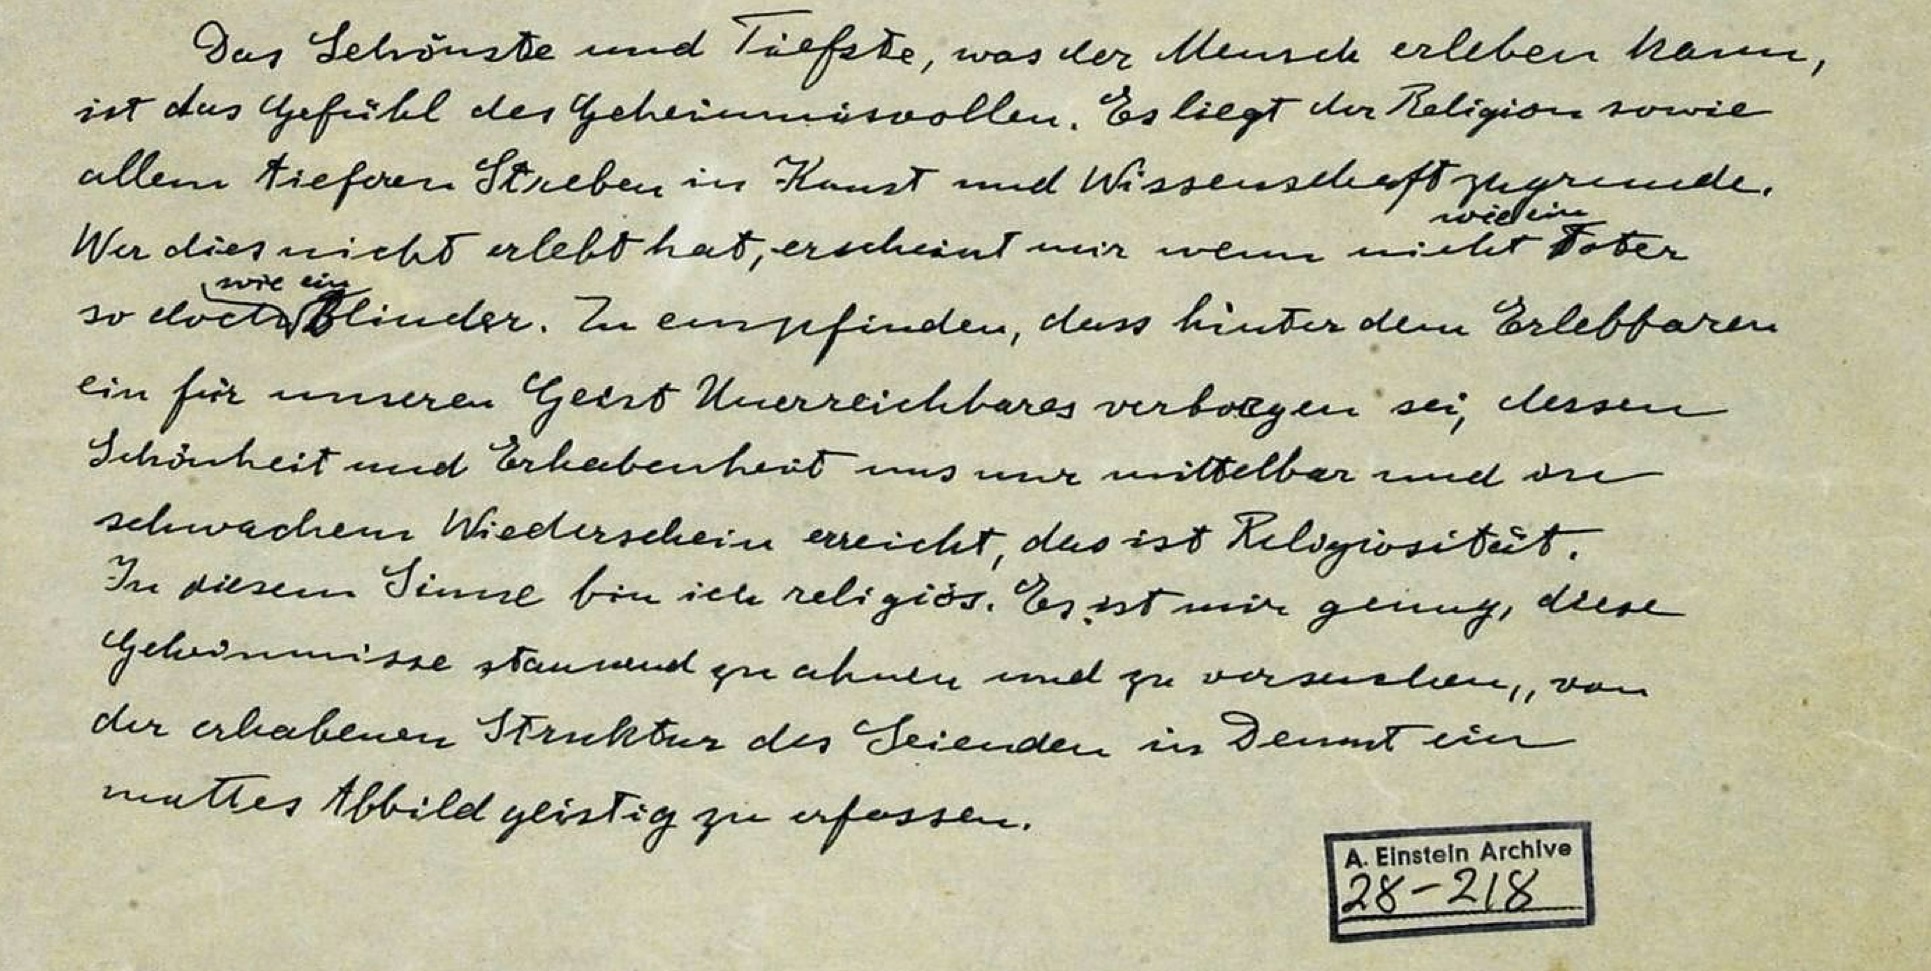 Das Schönste und Tiefste, was der Mensch erleben kann,
ist das Gefühl des Geheimnisvollen. Es liegt der Religion sowie
allem tieferen Streben in Kunst und Wissenschaft zugrunde.
wie ein
Wer dies nicht erlebt hat, erscheint mir wenn nicht Toter
wie ein
so doch Blinder. Zu empfinden, dass hinter dem Erlebbaren
ein für unseren Geist Unerreichbares verborgen sei, dessen
Schönheit und Erhabenheit uns nur mittelbar und in
schwachem Wiederschein erreicht, das ist Religiosität.
In diesem Sinne bin ich religiös. Es ist mir genug, diese
Geheimnisse staunend zu ahnen und zu versuchen, von
der erhabenen Struktur des Seienden in Demut ein
mattes Abbild geistig zu erfassen.
A. Einstein Archive
28-218